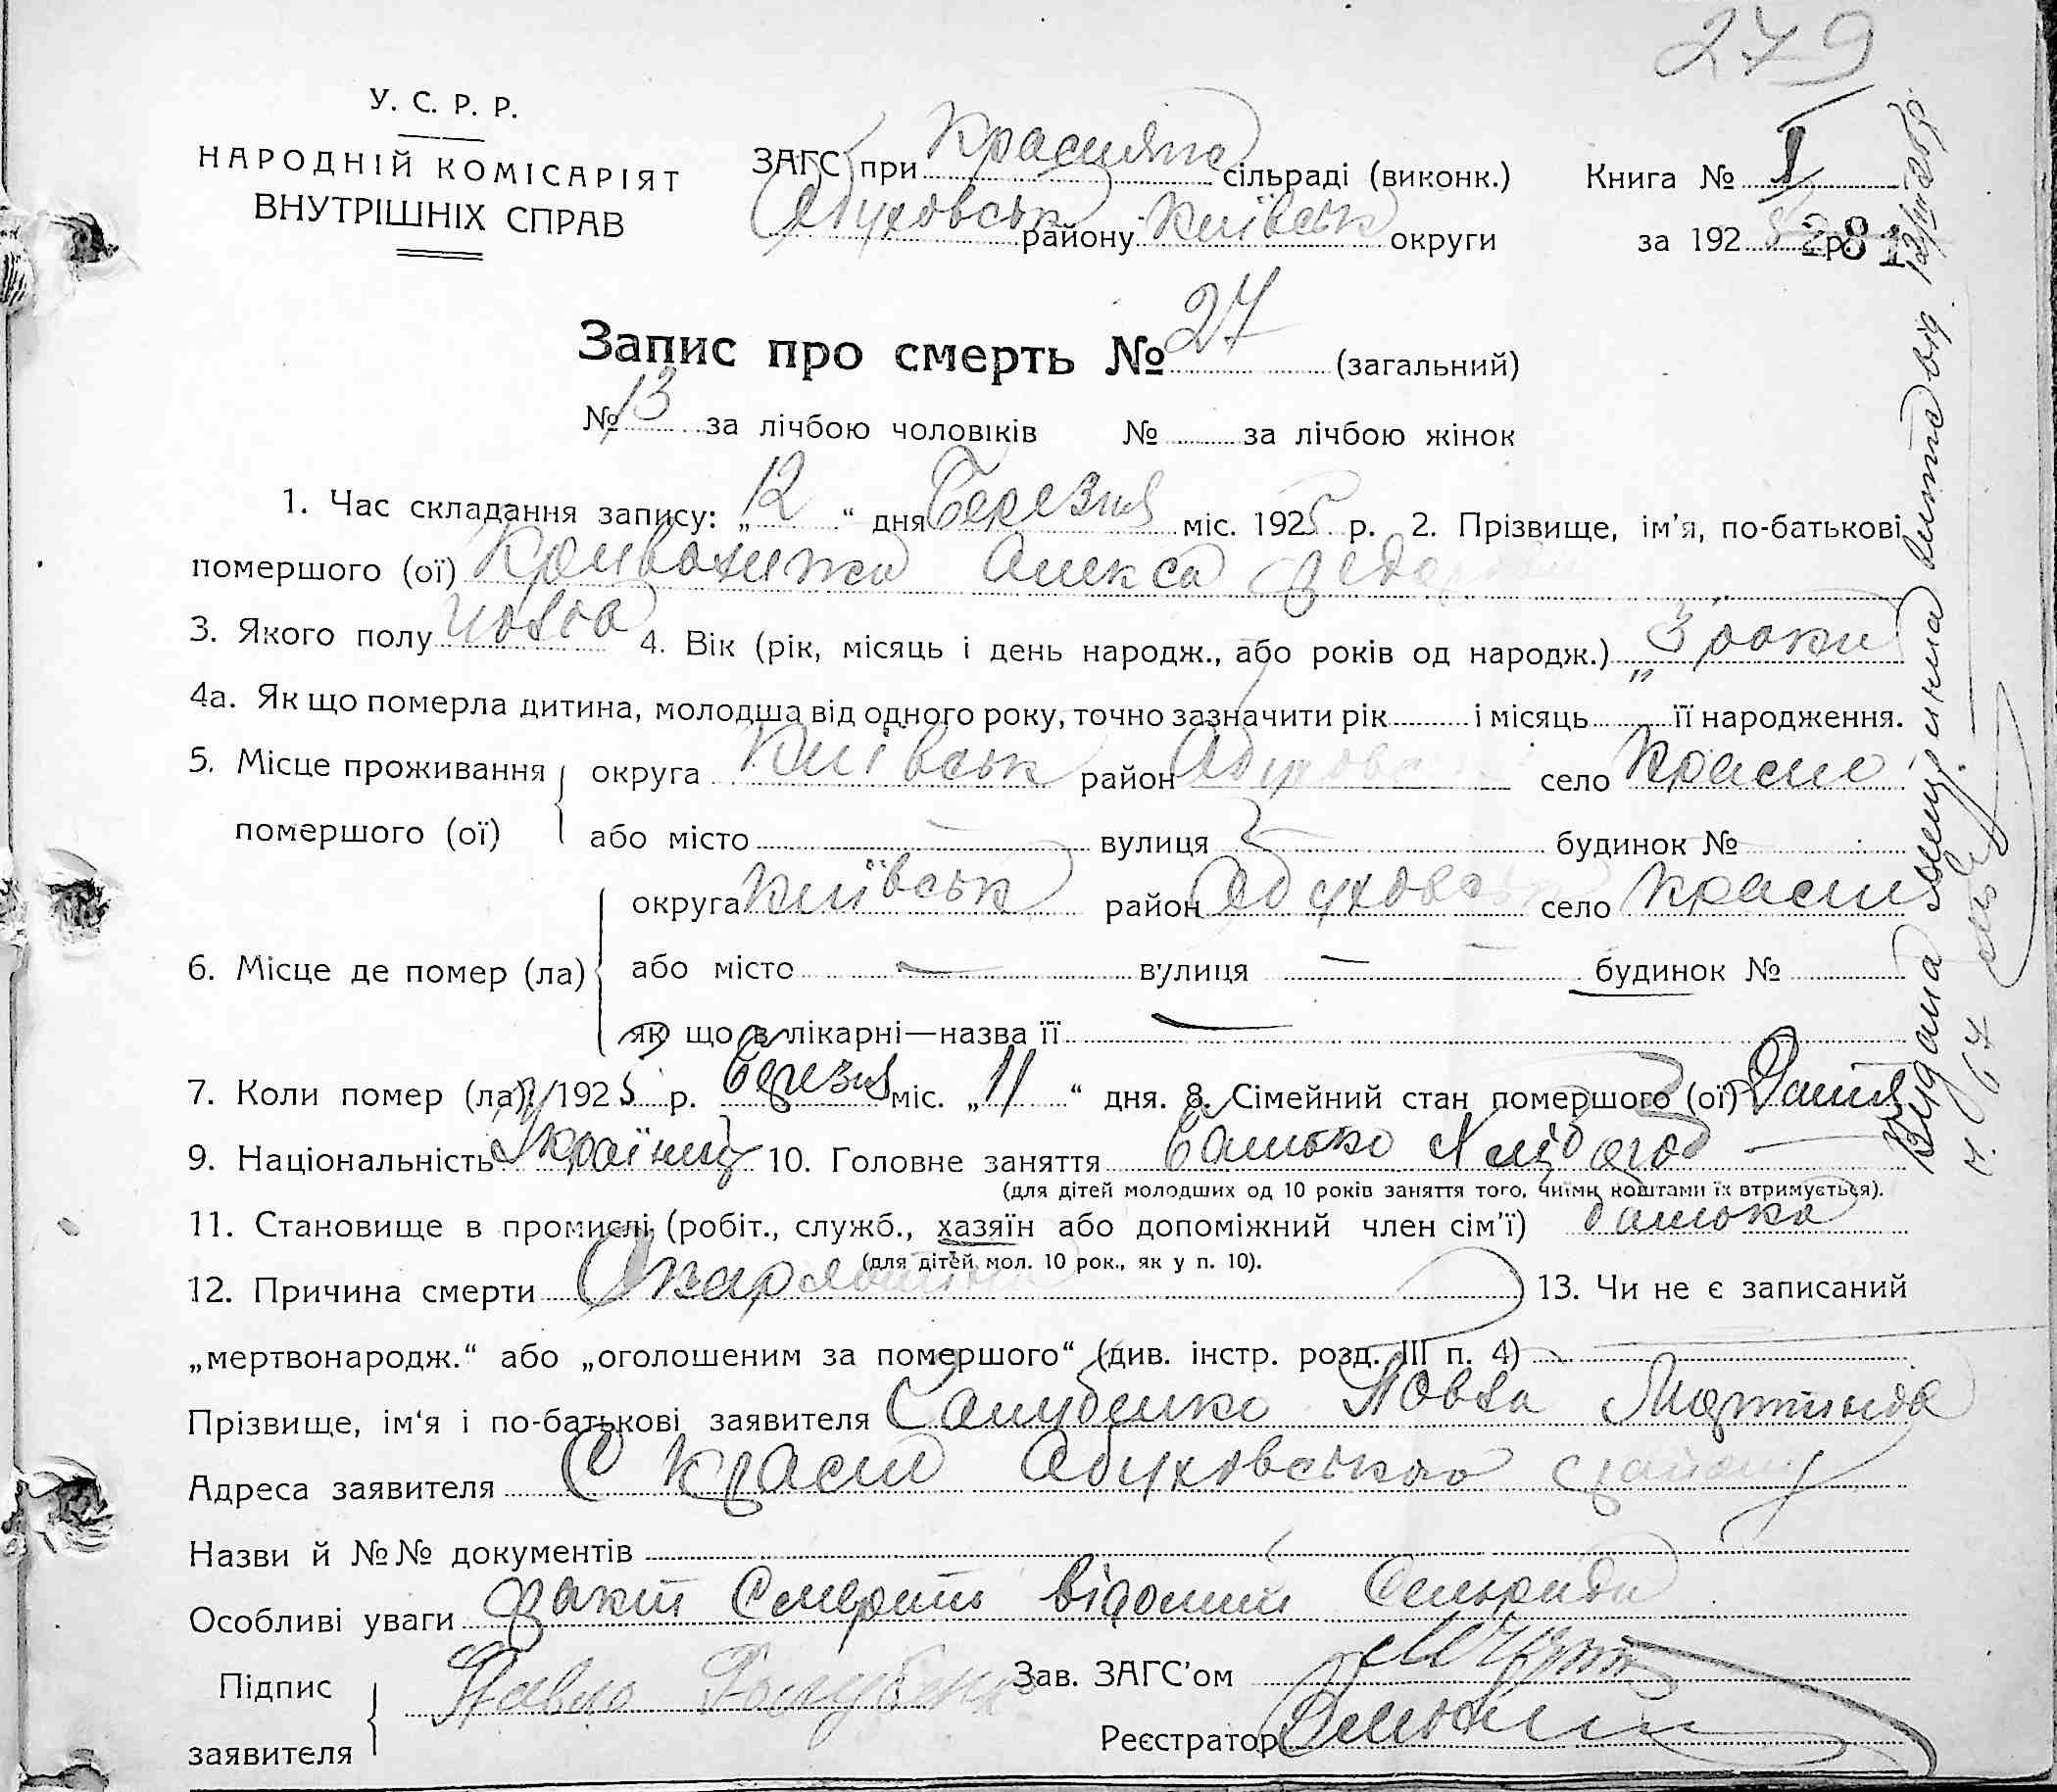 279
У. С. Р. Р.
НАРОДНІЙ КОМІСАРІЯТ
ВНУТРІШНІХ СПРАВ
ЗАГС при Красияне сільраді (виконк.)
Обуховськ району Київськ округи
Книга № I
за 192 р.
281
Запис про смерть № 27 (загальний)
№ 13 за лічбою чоловіків № за лічбою жінок
1. Час складання запису: „12“ дня Березня міс. 1925 р. 2. Прізвище, ім'я, по-батькові
помершого (ої) Кривохижа Олекса Федор
3. Якого полу 4. Вік (рік, місяць і день народж., або років од народж.) „3 роки
4а. Як що померла дитина, молодша від одного року, точно зазначити рік і місяць її народження.
5. Місце проживання округа Київськ район Обуховс село Красне
помершого (ої) або місто — вулиця — будинок №
округа Київськ район Обуховськ село Красне
6. Місце де помер (ла) або місто — вулиця — будинок №
як що в лікарні—назва її —
7. Коли помер (ла) 1925 р. Березня міс. „11“ дня. 8. Сімейний стан помершого (ої) Дитя
9. Національність Українц 10. Головне заняття батько Хлібороб —
(для дітей молодших од 10 років заняття того, чиїми коштами їх втримується).
11. Становище в промислі (робіт., служб., хазяїн або допоміжний член сім'ї) батька
(для дітей мол. 10 рок., як у п. 10).
12. Причина смерти Шкарлатина 13. Чи не є записаний
„мертвонародж.“ або „оголошеним за помершого“ (див. інстр. розд. III п. 4) —
Прізвище, ім'я і по-батькові заявителя Павло Мартинов
Адреса заявителя С Красне Обуховського району
Назви й №№ документів
Особливі уваги факт Смерти відомий Сельради
Підпис
заявителя Павло Голубенко
Зав. ЗАГС'ом
Реєстратор
Видана метрична витка від 12/III 25р.